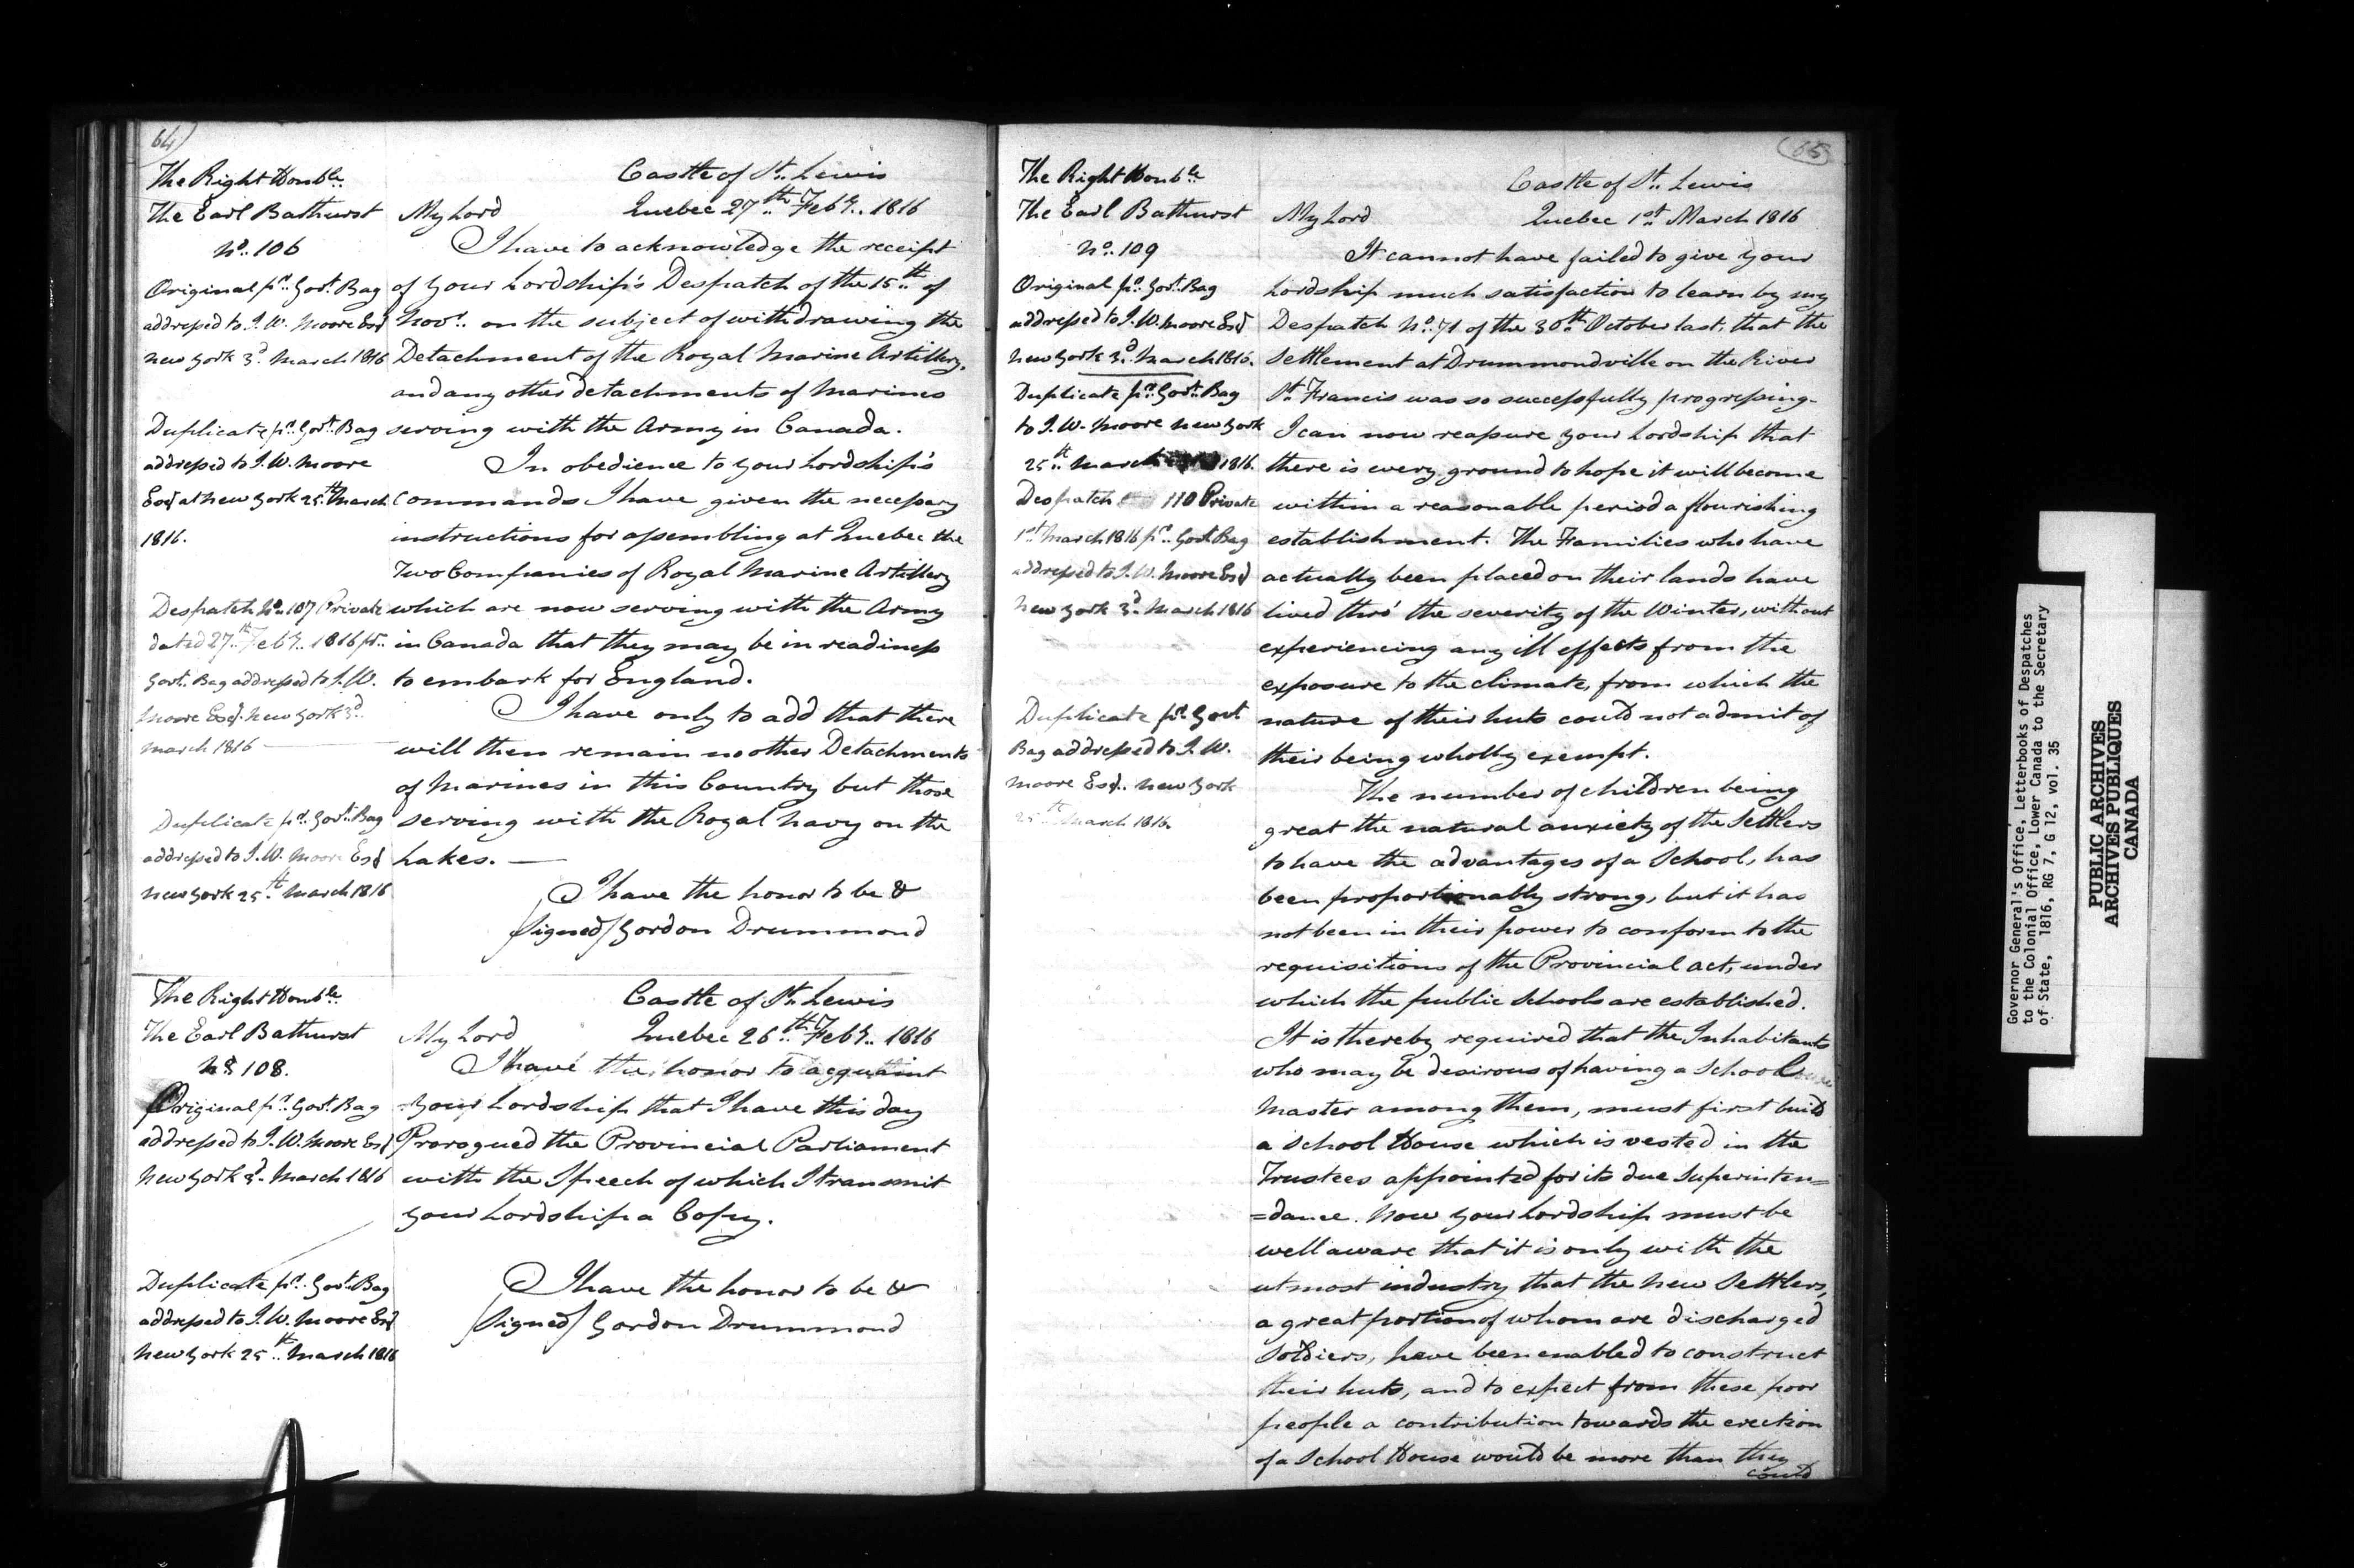 64
The Right Honble.
The Earl Bathurst
No. 106
Original pr. Govt. Bag
addressed to I. W. Moore Esq
New York 3d. March 1816
Duplicate pr. Govt. Bag
addressed to I. W. Moore
Esq at New York 25th March
1816.
Despatch No. 107 Private
dated 27th Feby. 1816 pr.
Govt. Bag addressed to I. W.
Moore Esq. New York 3d.
March 1816
Duplicate pr. Govt. Bag
addressed to I. W. Moore Esq
New York 25th March 1816
Castle of St. Lewis
My Lord Quebec 27th Feby. 1816
I have to acknowledge the receipt
of your Lordship's Despatch of the 15th of
Novr. on the subject of withdrawing the
Detachment of the Royal Marine Artillery,
and any other detachments of Marines
serving with the Army in Canada.
In obedience to your Lordship's
Commands I have given the necessary
instructions for assembling at Quebec the
Two Companies of Royal Marine Artillery
which are now serving with the Army
in Canada that they may be in readiness
to embark for England.
I have only to add that there
will then remain no other Detachments
of Marines in this Country but those
serving with the Royal Navy on the
Lakes. —
I have the honor to be &
/Signed/ Gordon Drummond
The Right Honble.
The Earl Bathurst
No. 108.
Original pr. Govt. Bag
addressed to I. W. Moore Esq
New York 3d. March 1816
Duplicate pr. Govt. Bag
addressed to I. W. Moore Esq
New York 25th March 1816
Castle of St. Lewis
My Lord Quebec 26th Feby. 1816
I have the honor to acquaint
your Lordship that I have this day
Prorogued the Provincial Parliament
with the Speech of which I transmit
your Lordship a Copy.
I have the honor to be &
/Signed/ Gordon Drummond
65
The Right Honble
The Earl Bathurst
No. 109
Original pr. Govt. Bag
addressed to I. W. Moore Esq
New York 3d. March 1816.
Duplicate pr. Govt. Bag
to I. W. Moore New York
25th March 1816.
Despatch 110 Private
1st March 1816 pr. Govt. Bag
addressed to I. W. Moore Esq
New York 3d. March 1816
Duplicate pr. Govt
Bag addressed to I. W.
Moore Esq. New York
25th March 1816.
Castle of St. Lewis
My Lord Quebec 1st. March 1816
It cannot have failed to give your
Lordship much satisfaction to learn by my
Despatch No. 71 of the 30th October last, that the
Settlement at Drummondville on the River
St. Francis was so successfully progressing.
I can now reassure your Lordship that
there is every ground to hope it will become
within a reasonable period a flourishing
establishment. The Families who have
actually been placed on their lands have
lived thro' the severity of the Winter, without
experiencing any ill effects from the
exposure to the climate, from which the
nature of their huts could not admit of
their being wholly exempt.
The number of children being
great the natural anxiety of the Settlers
to have the advantages of a School, has
been proportionably strong, but it has
not been in their power to conform to the
requisitions of the Provincial act, under
which the public Schools are established.
It is thereby required that the Inhabitants
who may be desirous of having a School
Master among them, must first build
a School House which is vested in the
Trustees appointed for its due Superinten=
=dance. Now your Lordship must be
well aware that it is only with the
utmost industry that the New Settlers,
a great portion of whom are discharged
Soldiers, have been enabled to construct
their huts, and to expect from these poor
people a contribution towards the erection
of a School House would be more than they
could
Governor General's Office, Letterbooks of Despatches
to the Colonial Office, Lower Canada to the Secretary
of State, 1816, RG 7, G 12, vol. 35
PUBLIC ARCHIVES
ARCHIVES PUBLIQUES
CANADA